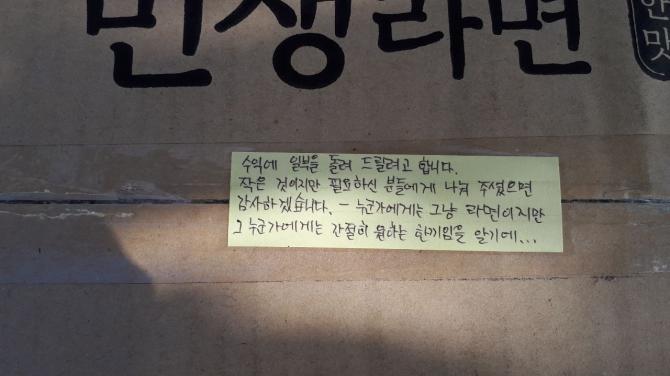 민생라면
한
맛
수익에 일부을 돌려 드릴려고 합니다.
작은 것이지만 필요하신 분들에게 나눠 주셨으면
감사하겠습니다. - 누군가에게는 그냥 라면이지만
그 누군가에게는 간절히 원하는 한끼임을 알기에...